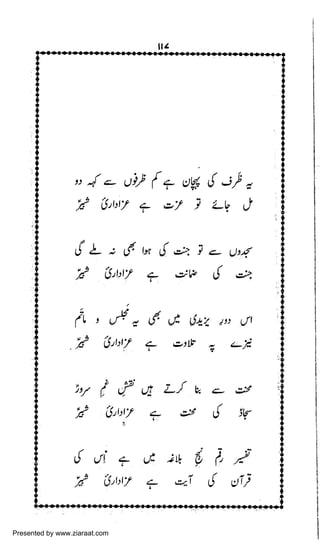 ۱۱۷
یہ ظرف کی پہچان ہے کم ظرفوں سے کہہ دو
مل جائے تو عزت ہے عزاداریٔ شبیرؑ
سجدوں سے تو جنت کی ہوا بھی نہ ملے گی
جنت کی ضمانت ہے عزاداریٔ شبیرؑ
اس دورِ یزیدی میں بھی یہ مجلس و ماتم
نیزے پہ تلاوت ہے عزاداریٔ شبیرؑ
محنت سے بنا کرتے ہیں نقشِ غمِ سرورؑ
سجادؑ کی محنت ہے عزاداریٔ شبیرؑ
تفسیر رقم نہج بلاغہ میں ہے اس کی
قرآن کی آیت ہے عزاداریٔ شبیرؑ
Presented by www.ziaraat.com